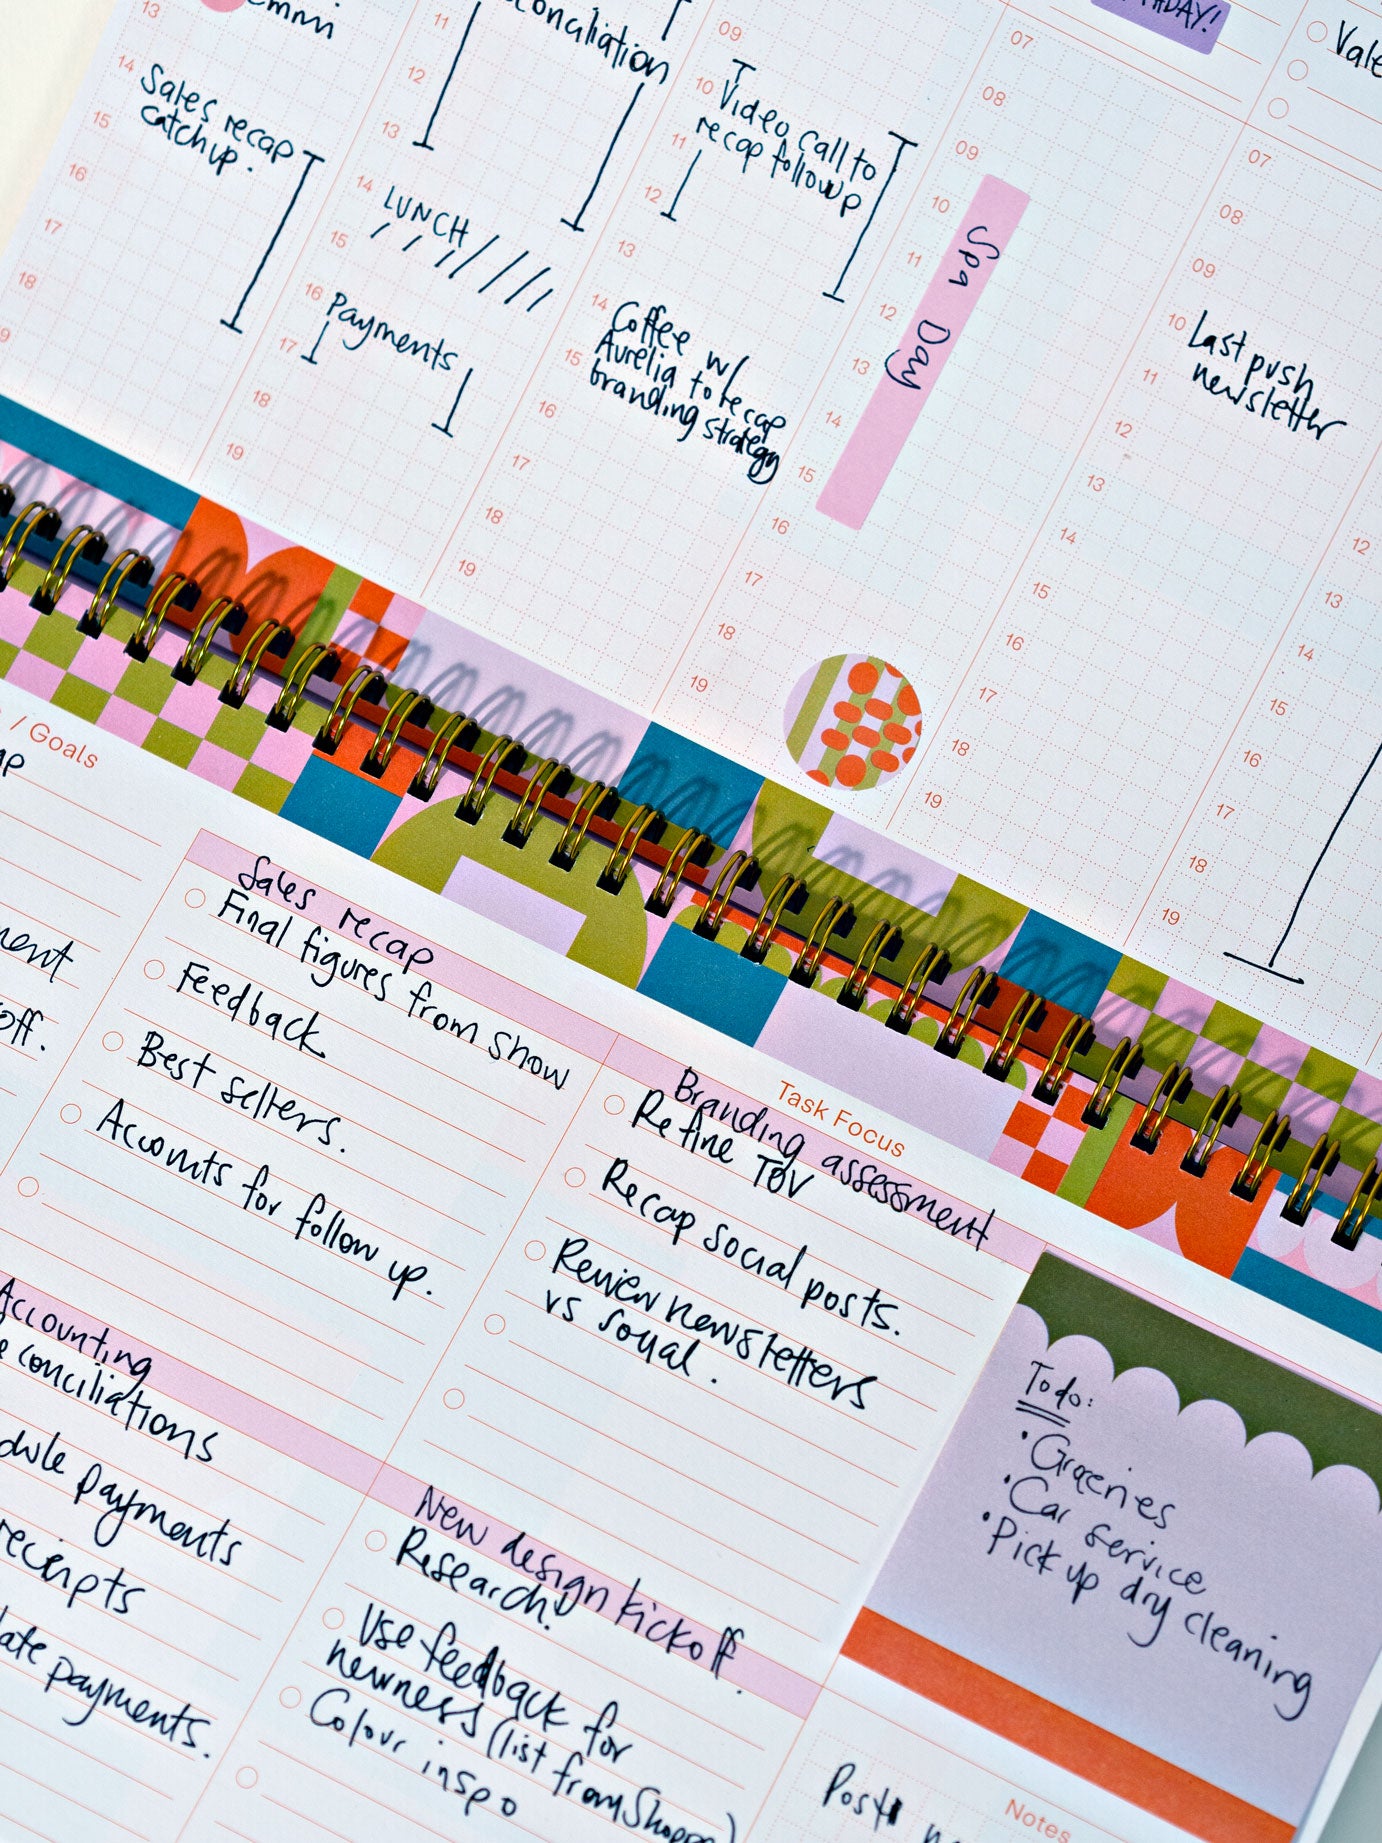 13
14
Sales recap
catch up.
15
16
17
18
11
12
13
14
LUNCH
15
16
Payments
17
18
19
09
10
Video call to
recap follow up
11
12
13
14
Coffee w/
Aurelia to recap
branding strategy
15
16
17
18
19
07
08
09
10
11
12
13
14
15
16
17
18
19
Spa Day
07
08
09
10
Last push
newsletter
11
12
13
14
15
16
17
18
19
12
13
14
15
16
17
18
19
/ Goals
off.
Sales recap
Final figures from show
Feedback
Best sellers.
Accounts for follow up.
Task Focus
Branding assessment
Refine TOV
Recap social posts.
Review newsletters
vs social.
Accounting
payments
receipts
payments.
New design kickoff.
Research!
Use feedback for
newness (list from
Colour inspo
To do:
• Groceries
• Car service
• Pick up dry cleaning
Notes